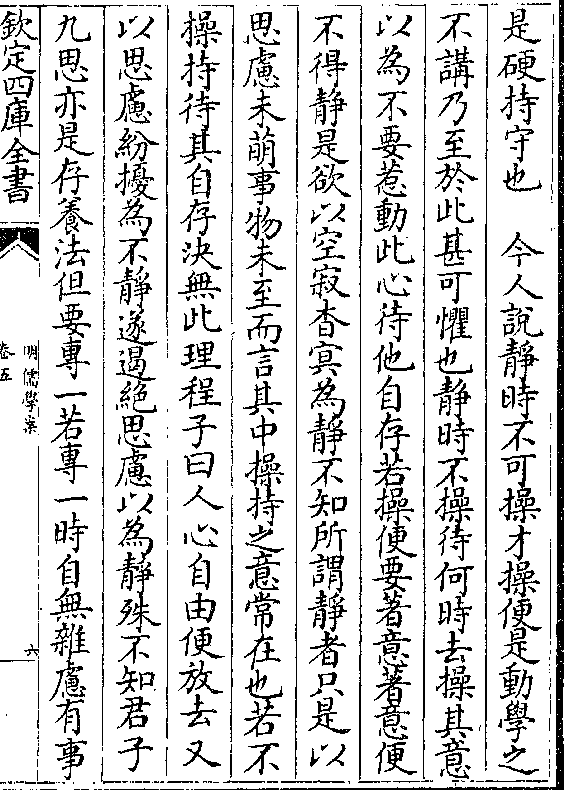 是硬持守也　今人說靜時不可操才操便是動學之
不講乃至於此甚可懼也靜時不操待何時去操其意
以為不要惹動此心待他自存若操便要著意著意便
不得靜是欲以空寂杳冥為靜不知所謂靜者只是以
思慮未萌事物未至而言其中操持之意常在也若不
操持待其自存決無此理程子曰人心自由便放去又
以思慮紛擾為不靜遂遏絕思慮以為靜殊不知君子
九思亦是存養法但要專一若專一時自無雜慮有事
欽定四庫全書
明儒學案
卷五
六